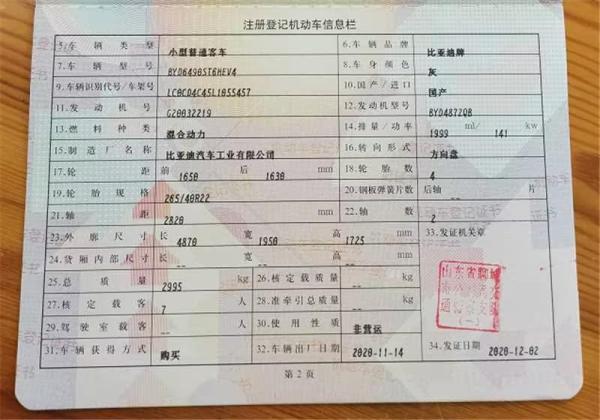 注册登记机动车信息栏
5.车辆类型 小型普通客车 6.车辆品牌 比亚迪牌
7.车辆型号 BYD6490ST6HEV4 8.车身颜色 灰
9.车辆识别代号/车架号 LC0CD4C45L1055457 10.国产/进口 国产
11.发动机号 G20032219 12.发动机型号 BYD487ZQB
13.燃料种类 混合动力 14.排量/功率 1999 ml/ 141 kw
15.制造厂名称 比亚迪汽车工业有限公司 16.转向形式 方向盘
17.轮距 前 1650 后 1630 mm 18.轮胎数 4
19.轮胎规格 265/40R22 20.钢板弹簧片数 后轴 -- 片
21.轴距 2820 mm 22.轴数 2
23.外廓尺寸 长 4870 宽 1950 高 1725 mm 33.发证机关章
24.货厢内部尺寸 长 -- 宽 -- 高 -- mm
25.总质量 2995 kg 26.核定载质量 -- kg
27.核定载客 7 人 28.准牵引总质量 -- kg
29.驾驶室载客 -- 人 30.使用性质 非营运
31.车辆获得方式 购买 32.车辆出厂日期 2020-11-14 34.发证日期 2020-12-02
山东省聊城
第 2 页